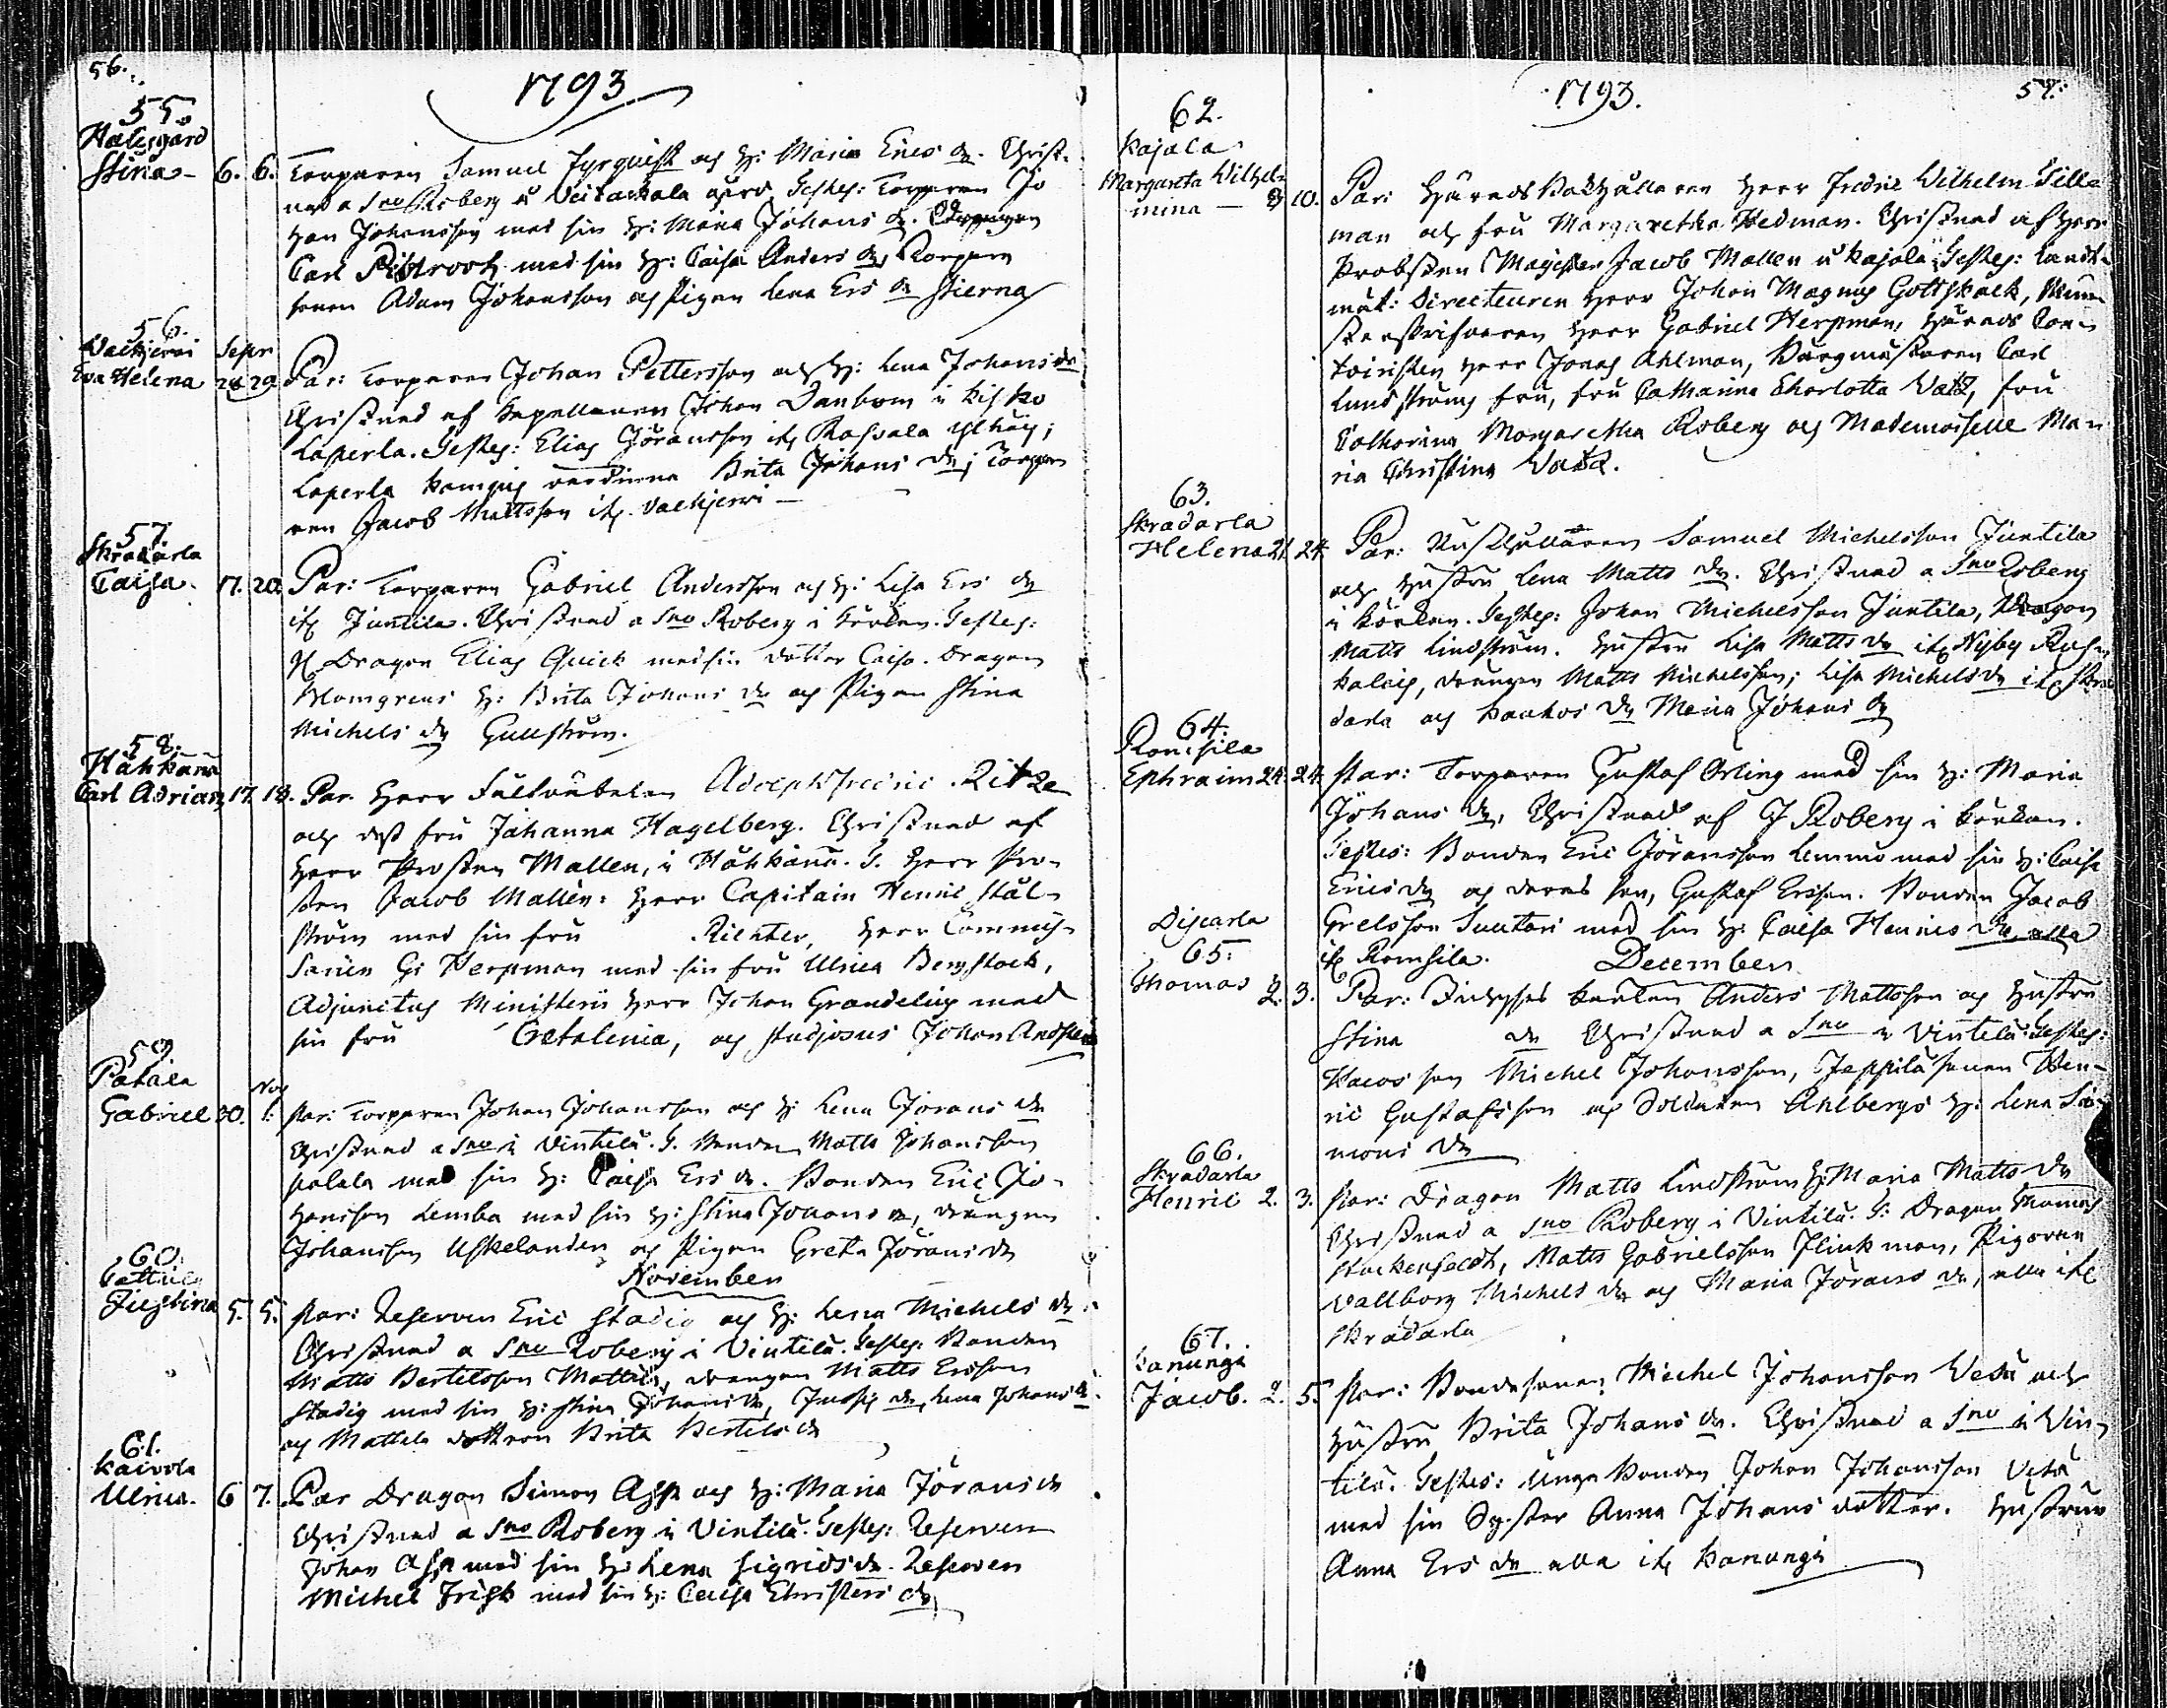 56.
1793
55.
Halsgård
Stina - 6. 6. Torparen Samuel Fyrquist och H: Maria Erics dr. Christ-
nad a Sno Roberg
han Johansson med sin H: Maria Johans dr.
Carl med sin H: Caisa Anders dr, Torpare
sonen Adam Johansson och Pigan Lena Ers dr Stierna
56. Sepr
Eva Helena 28 29 Par: Torparen Johan Pettersson och H: Lena Johans dr
Christnad af Capellanen Johan Danbom i Kisko
Laperla. Testes: Elias Jöransson
Laperla värdinna Brita Johans dr; Torpa-
ren Jacob Mattsson
57.
Skradarla
Caisa. 17. 20. Par: Torparen Gabriel Andersson och H: Lisa Ers dr
Juntila. Christnad a Sno Roberg i Körkan. Testes:
Dragon Elias Quick med sin dotter Caisa. Dragon
Blomgrens H: Brita Johans dr och Pigan Stina
Michels dr Gullström.
58.
Håhkana
Carl Adrian 17. 18. Par. Herr Fältväbelen Adolph Fredric Ritze
och dess fru Johanna Hagelberg. Christnad af
Herr Prosten Mallen, i Håhkana. T. Herr Pro-
sten Jacob Mallen: Herr Capitain Henric Stål-
ström med sin fru Richter, Herr Commis-
sarien G: Herpman med sin fru Ulrica Bergstock,
Adjunctus Ministerii Herr Johan Grandelius med
sin fru Cretalenia, och Studiosus Johan
59. Nov
Gabriel 30. 1. Par: Torparen Johan Johansson och H: Lena Jörans dr
Christnad a Sno i Vintilä. T. Bonden Matts Johansson
Palala med sin H: Caisa Ers dr. Bonden Eric Jo-
hansson Lemba med sin H: Stina Johans dr, drängen
Johansson Uskelander och Pigan Greta Jörans dr
November
60.
Justina 5. 5. Par: Reserven Eric Stadig och H: Lena Michels dr
Christnad a Sno Roberg i Vintilä. Testes: Bonden
Matts Bertelsson Mattila, drängen Matts Ersson
Stadig med sin H: Stina Johans dr, dr, Lena Johans dr
och Mattila dottren Brita Bertels dr
61.
Kaivola
Ulrica. 6 7. Par Dragon Simon Asp och H: Maria Jörans dr
Christnad a Sno Roberg i Vintilä. Testes: Reserven
Johan Asp med sin H: Lena Sigrids dr. Reserven
Michel Frisk med sin H: Caisa Christers dr
1793. 57.
62.
Kajala
Margareta Wilhel-
mina - 9 10. Par: Härads Bokhållaren Herr Fredric Wilhelm Sille-
man och fru Margaretha Hedman. Christnad af Herr
Probsten Magister Jacob Mallen i Kajala. Testes: Landt-
mät: Directeuren Herr Johan Magnus Gottskalk, Mun-
sterskrifvaren Herr Gabriel Herpman, Härads Con-
toristen Herr Jonas Ahlman, Borgmästaren Carl
Lundströms fru, fru Catharina Charlotta Watz, fru
Catharina Margaretha Roberg och Mademoiselle Ma-
ria Christina Watz.
63.
Skradarla
Helena 21. 24. Par: Rusthållaren Samuel Michelsson Juntila
och Hustru Lena Matts dr. Christnad a Sno Roberg
i Körkan. Testes: Johan Michelsson Juntila, Dragon
Matts Lindström. Hustru Lisa Matts dr Nyby
drängen Matts Michelsson; Lisa Michels dr Skra-
darla och dr Maria Johans dr
64.
Romsila
Ephraim 24. 24. Par: Torparen Gustaf Orling med sin H: Maria
Johans dr, Christnad af J Roberg i Körkan.
Testes: Bonden Eric Jöransson Lemmo med sin H: Caisa
Erics dr och deras son, Gustaf Ersson. Bonden Jacob
Grelsson Suutari med sin H: Caisa Henrics dr, alla
Romsila.
December
Discarla
65.
Thomas 2. 3. Par: Anders Mattsson och Hustru
Stina dr Christnad a Sno i Vintilä. Testes:
son Michel Johansson, Jeppilä sonen Hen-
ric Gustafsson och Soldaten Ahlbergs H: Lena Si-
mons dr
66.
Skradarla
Henric 2. 3. Par: Dragon Matts Lindström H: Maria Matts dr
Christnad a Sno Roberg i Vintilä. T: Dragon Thomas
Matts Gabrielsson Flinkman, Pigorna
Vallborg Michels dr och Maria Jörans dr, alla
Skradarla
67.
Kanungi
Jacob. 2. 5. Par: Bondesonen Michel Johansson Uesu och
Hustru Brita Johans dr. Christnad a Sno i Vin-
tilä. Testes: Unga Bonden Johan Johansson
med sin Syster Anna Johans dotter. Hustrun
Anna Ers dr alla Kanungi